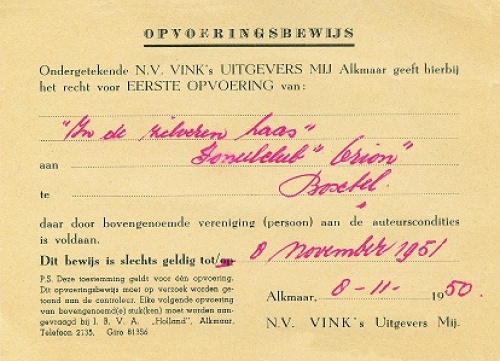 OPVOERINGSBEWIJS
Ondergetekende N.V. VINK's UITGEVERS MIJ Alkmaar geeft hierbij
het recht voor EERSTE OPVOERING van:
"In de zilveren haas"
aan Toneelclub "Orion"
te Boxtel.
daar door bovengenoemde vereniging (persoon) aan de auteurscondities
is voldaan.
Dit bewijs is slechts geldig tot/op 8 November 1951
P.S. Deze toestemming geldt voor één opvoering.
Dit opvoeringsbewijs moet op verzoek worden ge-
toond aan de controleur. Elke volgende opvoering
van bovengenoemd(e) stuk(ken) moet worden aan-
gevraagd bij I.B.V.A. „Holland", Alkmaar,
Telefoon 2135. Giro 81356
Alkmaar, 8-11- 1950.
N.V. VINK's Uitgevers Mij.